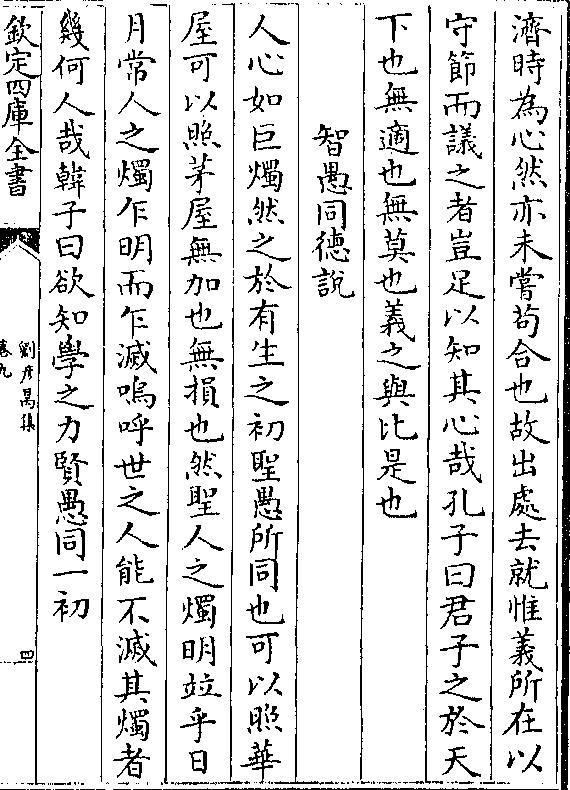 濟時為心然亦未嘗茍合也故出處去就惟義所在以
守節而議之者豈足以知其心哉孔子曰君子之於天
下也無適也無莫也義之與比是也
智愚同德說
人心如巨燭然之於有生之初聖愚所同也可以照華
屋可以照茅屋無加也無損也然聖人之燭明竝乎日
月常人之燭乍明而乍滅嗚呼世之人能不滅其燭者
幾何人哉韓子曰欲知學之力賢愚同一初
欽定四庫全書
劉彥昺集
卷九
四